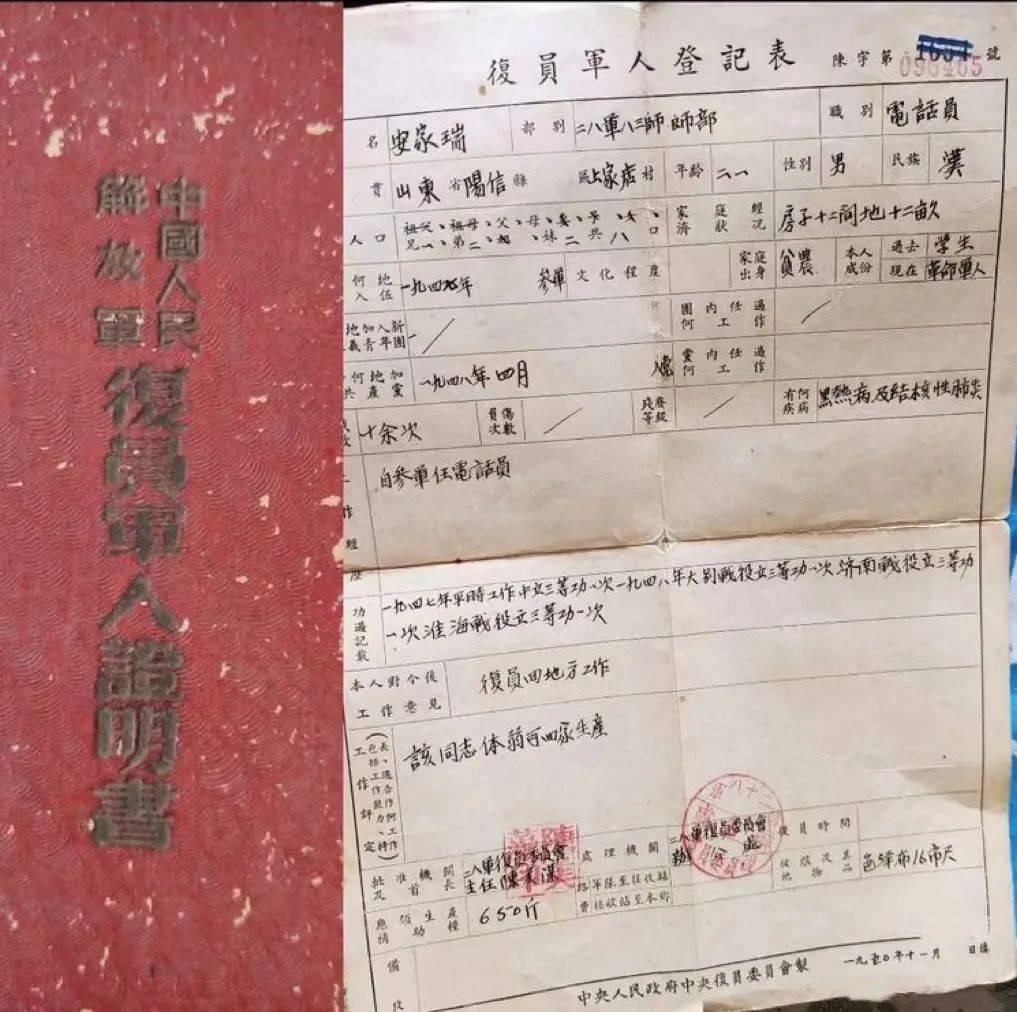 中國人民
解放軍
復員軍人證明書
復員軍人登記表
陳字第 096465 號
名 安家瑞 部別 二八軍八三師師部 職別 電話員
山東省陽信縣 區上家店村 年齡 二一 性別 男 民族 漢
人口 祖父、祖母、父、母、妻、子、女、兄一、弟二、妹二共八口 家庭經濟狀況 房子十二間地十二畝
何地入伍 一九四六年 參軍 文化程度 家庭出身 貧農 本人成份 過去 學生 現在 革命軍人
地加入新 義青年團 團內任過何工作
何地加 共產黨 一九四八年四月 黨內任過何工作
十余次 負傷次數 殘廢等級 有何疾病 黑熱病及結核性肺炎
作經歷 自參軍任電話員
功過記載 一九四七年平時工作中立三等功一次一九四八年大別戰役立三等功一次濟南戰役立三等功
一次淮海戰役立三等功一次
本人對今後工作意見 復員回地方工作
工作評定 該同志体弱可回家生產
批准機關及首長 二八軍復員委員會主任陳 處理機關 二八軍復員委員會 復員時間
路費 軍隊至接收站 接收站至本鄉 被服及其他物品 色澤布16市尺
應領生產補助糧 650斤
備
中央人民政府中央復員委員會製 一九五〇年十一月 日填